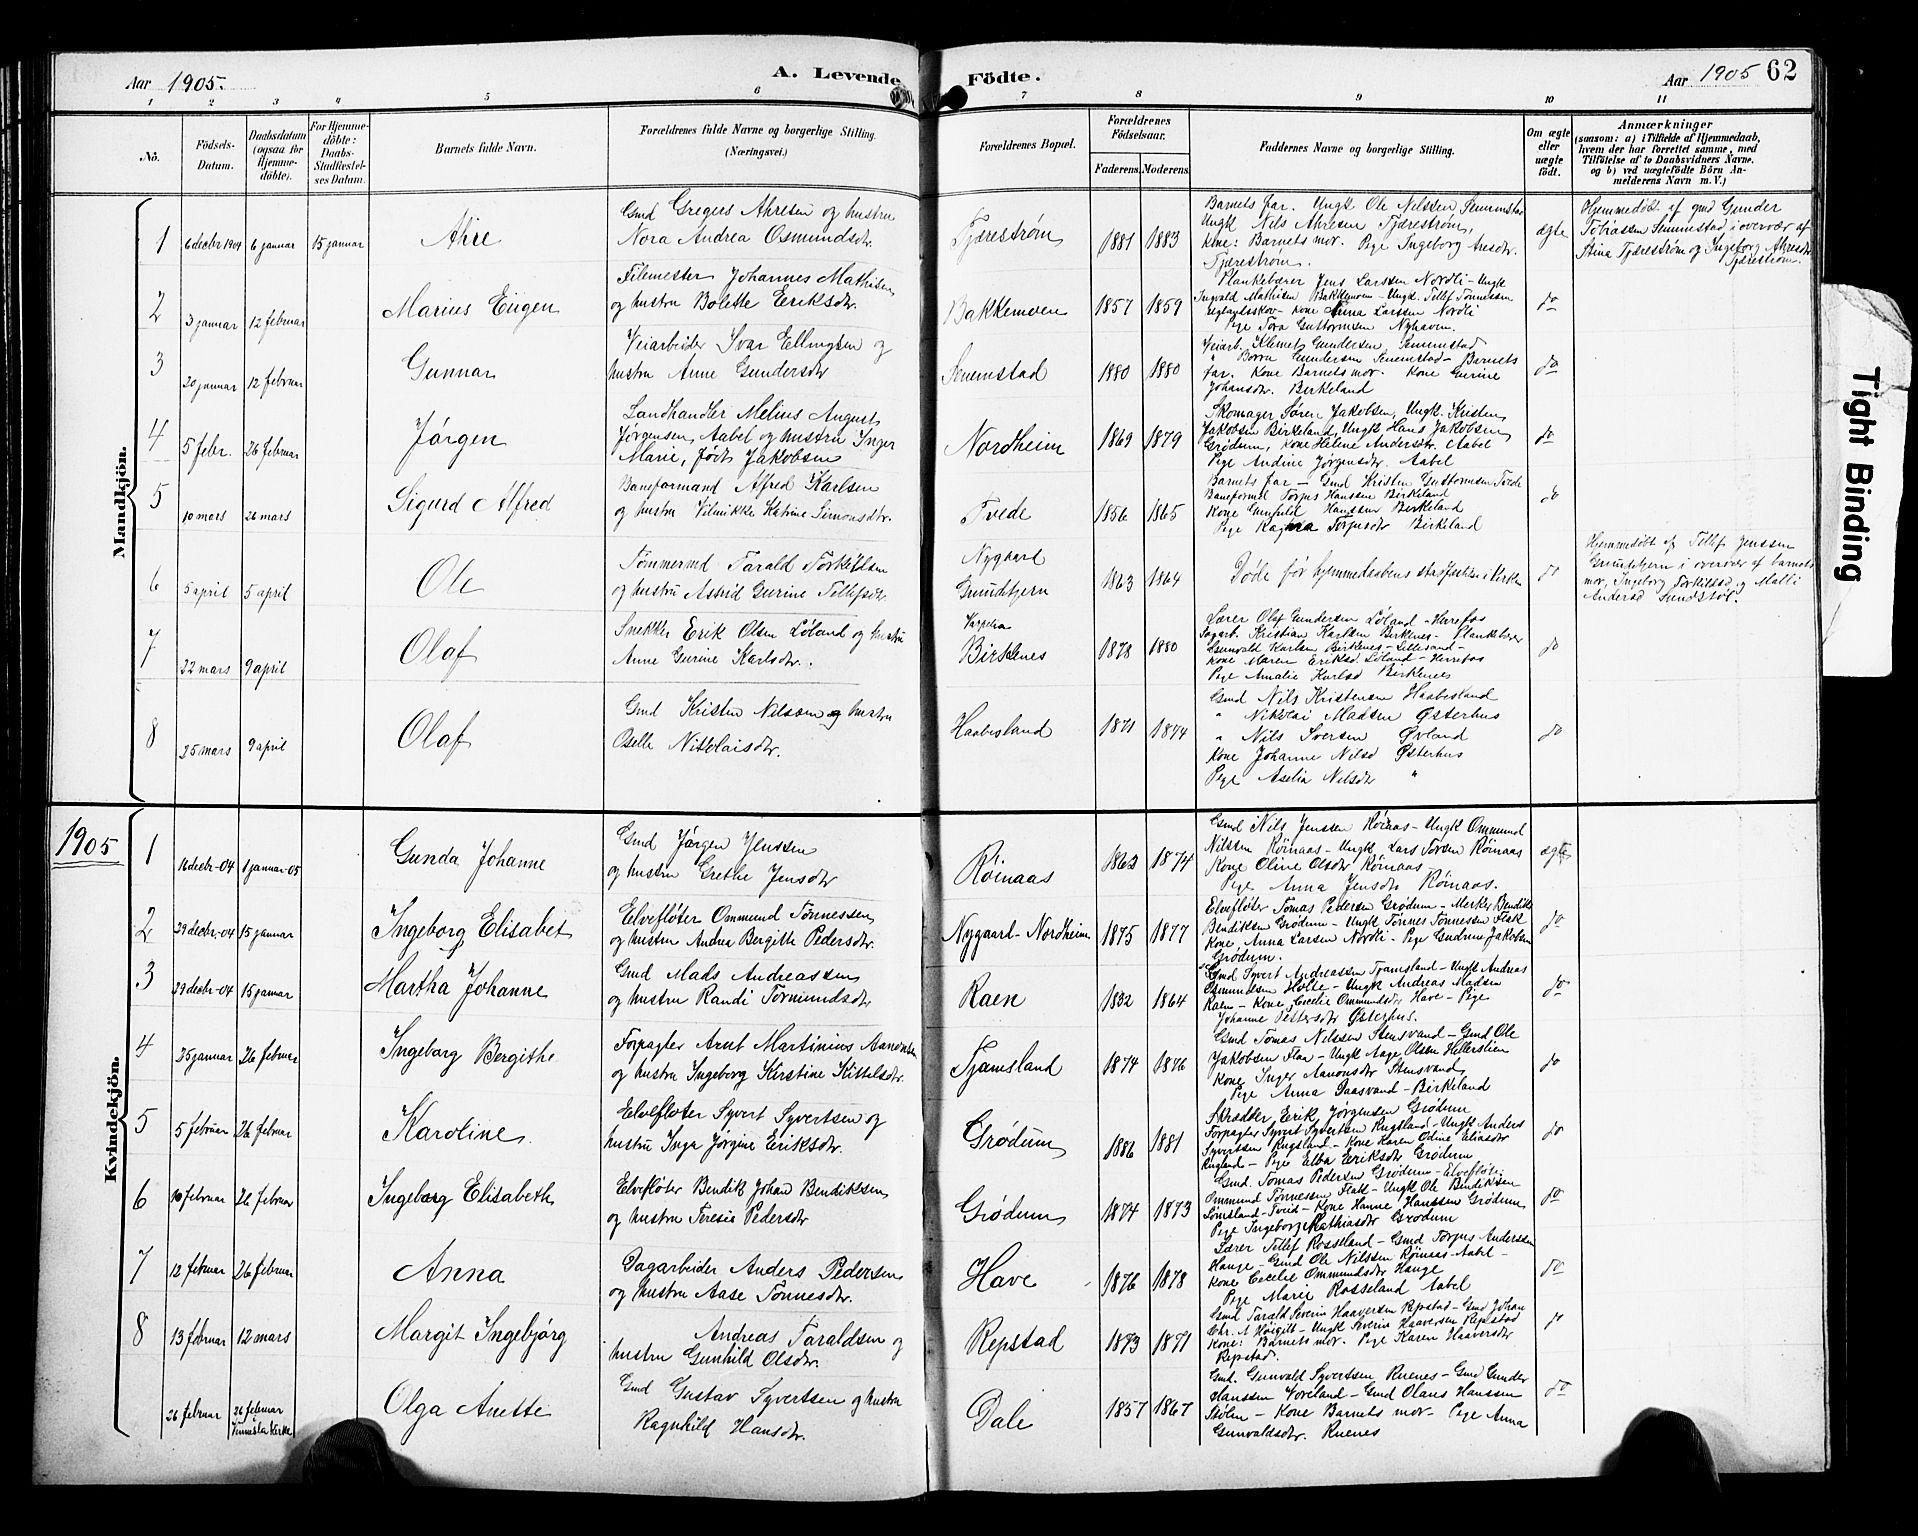 Aar 1905.
A. Levende Födte.
Aar 1905 62
1 2 3 4 5 6 7 8 9 10 11
No.
Födsels-Datum.
Daabsdatum (ogsaa for Hjemmedöbte).
For Hjemmedöbte: Daabs-Stadfæstelses Datum.
Barnets fulde Navn.
Forældrenes fulde Navne og borgerlige Stilling. (Næringsvei.)
Forældrenes Bopæl.
Forældrenes Födselsaar.
Faderens. Moderens.
Faddernes Navne og borgerlige Stilling.
Om ægte eller uægte födt.
Anmærkninger
(saasom: a) i Tilfælde af Hjemmedaab,
hvem der har forrettet samme, med
Tilföielse af to Daabsvidners Navne.
og b) ved uægtefödte Börn An-
melderens Navn m. V.)
Mandkjön.
1 6 decbr 1904 6 januar 15 januar Ahre
Gmd Gregers Ahresen og hustru
Nora Andrea Osmundsdtr.
Tjærestrøm 1881 1883
Barnets far. Ungk Ole Nilssen Senumstad
Ungk Nils Ahresen Tjærestrøm,
Kone: Barnets mor. Pige Ingeborg Aresdtr.
Tjærestrøm.
ægte
Hjemmedøbt af gmd Gunder
Tobiassen Senumstad i overvær af
Stina Tjærestrøm og Ingeborg Ahresdtr
Tjærestrøm.
2 3 januar 12 februar Marius Eugen
Filemester Johannes Mathisen
og hustru Bolette Eriksdtr.
Bakkemoen 1857 1859
Plankebærer Jens Larssen Nordli - Ungk
Ingvald Mathisen Bakkemoen - Ungk. Tellef Tønnessen
Kone Anna Larssen Nordli
Pige Tora Guttormsen Nyhaven.
do
3 20 januar 12 februar Gunnar
Veiarbeider Ivar Ellingsen og
hustru Anne Gundersdtr
Senumstad 1880 1880
Veiarb. Klemet Gundersen, Senumstad
" Børre Gundersen Senumstad - Barnets
far. Kone Barnets mor. Kone Gurine
Johansdtr. Birkeland
do
4 5 febr. 26 februar Jørgen
Landhandler Melius August
Jørgensen Aabel og hustru Inger
Marie, født Jakobsen
Nordheim 1869 1879
Skomager Søren Jakobsen, Ungk. Kristen
Jakobsen Birkeland, Ungk. Hans Jakobsen
Grødum, Kone Helene Andersdtr. Aabel
Pige Andine Jørgensdtr. Aabel
do
5 10 mars 26 mars Sigurd Alfred
Baneformand Alfred Karlsen
og hustru Vilmikke Katrine Simonsdtr.
Tvede 1856 1865
Barnets far - Gmd Kristen Guttormsen Tvede
Baneformd Torjus Hanssen Birkeland
Kone Gunhild Hanssen Birkeland
Pige Ragna Torjusdtr Birkeland
do
6 5 april 5 april Ole
Tømmermd Tarald Torkelsen
og hustru Astrid Gurine Tellefsdtr
Nygaard
Grundetjern 1863 1864
Døde før hjemmedaabens stadfæstelse i Kirken
do
Hjemmedøbt af Tellef Jenssen
Grundetjern i overvær af barnets
mor, Ingeborg Torkilsd og Malli
Andersd Sundstøl.
7 22 mars 9 april Olaf
Snekker Erik Olsen Løland og hustru
Anne Gurine Karlsdtr.
Birkenes 1878 1880
Lærer Olaf Gundersen Løland - Herrefos
Sagarb. Kristian Karlsen Birkenes - Plankebærer
Gunvald Karlsen Birkenes - Lillesand -
Kone Maren Eriksd Løland - Herrefos
Pige Amalie Karlsd Birkenes
do
8 25 mars 9 april Olaf
Gmd Kristen Nilssen og hustru
Oselle Nikolaisdtr.
Haabesland 1871 1874
Gmd Nils Kristensen Haabesland
" Nikolai Madsen Østerhus
" Nils Iversen Øvland
Kone Johanne Nilsd Østerhus
Pige Aselia Nilsdtr "
do
1905
Kvindekjön.
1 16 decbr-04 1 januar-05 Gunda Johanne
Gmd Jørgen Jenssen
og hustru Grethe Jensdtr
Røinaas 1862 1874
Gmd Nils Jenssen Røinaas - Ungk Ommund
Nilssen Røinaas - Ungk Lars Torsen Røinaas
Kone Oline Olsdtr Røinaas
Pige Anna Jensdtr Røinaas.
ægte
2 29 decbr-04 15 januar Ingeborg Elisabet
Elvefløter Ommund Tønnessen
og hustru Andrea Bergitte Pedersdtr.
Nygaard-Nordheim 1875 1877
Elvefløter Tomas Pedersen Grødum - Merker Bendik
Bendiksen Grødum - Ungk Tønnes Tønnessen Flak
Kone Anna Larsen Nordli - Pige Gudrun Jakobsen
Grødum.
do
3 29 decbr-04 15 januar Martha Johanne
Gmd Mads Andreassen
og hustru Randi Tormundsdtr
Raen 1832 1864
Gmd Syvert Andreassen Tjamsland - Ungk Andreas
Osmundsen Hølle - Ungk Andreas Madsen
Raen - Kone Cecelie Ommundsdtr Have - Pige
Johanne Pettersdtr Østerhus.
do
4 25 januar 26 februar Ingeborg Bergithe
Forpagter Arnt Martinius Aanonsen
og hustru Ingeborg Kirstine Kittelsdtr.
Tjamsland 1874 1876
Gmd Tomas Nilssen Stensvand - Gmd Ole
Jakobsen Flaa - Ungk Aage Olsen Hellerslien
Kone Inger Aanonsdtr Stensvand
Pige Anna Daasvand - Birkeland
do
5 5 februar 26 februar Karoline
Elvefløter Syvert Syvertsen og
hustru Inga Jørgine Eriksdtr.
Grødum 1886 1881
Skrædder Erik Jørgensen Grødum
Forpagter Syvert Syvertsen Rugsland - Ungk Anders
Syvertsen Rugsland - Kone Karen Odine Eliasdtr
Rugland - Pige Elba Eriksdtr Grødum
do
6 10 februar 26 februar Ingeborg Elisabeth
Elvefløter Bendik Johan Bendiksen
og hustru Teresie Pedersdtr
Grødum 1874 1873
Gmd. Tomas Pedersen Grødum - Elvefløter
Ommund Tønnessen Flak - Ungk Ole Bendiksen
Lønsland - Tveit - Kone Hanne Hanssen Grødum
Pige Ingeborg Mathiasdtr Grødum
do
7 12 februar 26 februar Anna
Dagarbeider Anders Pedersen
og hustru Aase Tønnesdtr.
Have 1876 1878
Lærer Tellef Rosseland - Gmd Torjus Anderssen
Hauge - Gmd Ole Nilssen Røinaas - Aabel -
Kone Cecelie Ommundsdtr Hauge
Pige Marie Rosseland Aabel
do
8 13 februar 12 mars Margit Ingebjørg
Andreas Taraldsen og
hustru Gunhild Olsdtr.
Repstad 1873 1871
Gmd Tarald Severin Haaversen Repstad - Gmd Johan
Chr. A Høigilt - Ungk Severin Haaversen Repstad
Kone: Barnets mor. Pige Karen Haaversdtr
Repstad.
do
26 februar 26 februar Vennesla Kirke Olga Anette
Gmd Gustav Syvertsen og hustru
Ragnhild Hansdtr.
Dale 1857 1867
Gmd. Gunvald Syvertsen Ruenes - Gmd Gunder
Hanssen Voreland - Gmd Olaus Hanssen
Stølen - Kone Barnets mor - Pige Anna
Gunvaldsdtr. Ruenes
do
Tight Binding